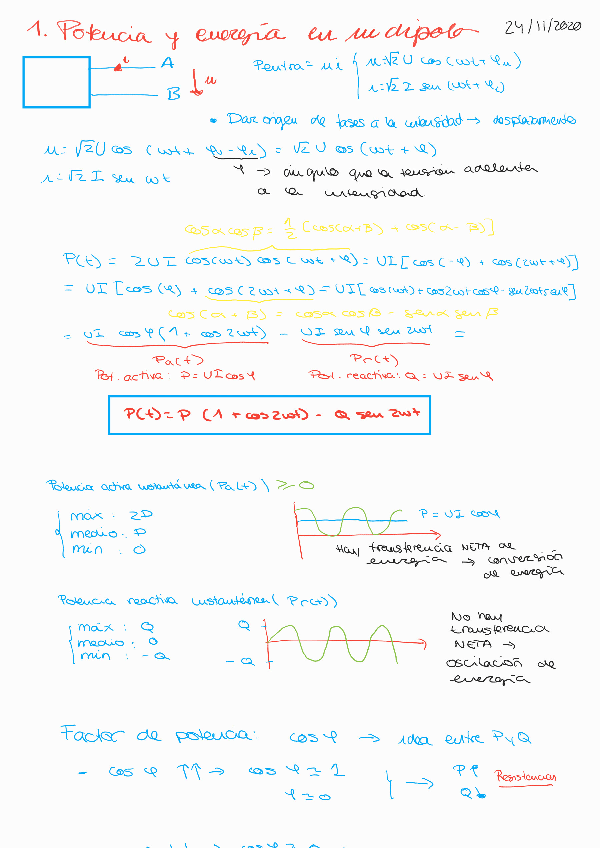 1. Potencia y energía en un dipolo 24/11/2020
i A
B u
Pentra = ui { u = √2 U cos (ωt + φu)
i = √2 I sen (ωt + φi)
• Dar origen de fases a la intensidad → desplazamiento
u = √2 U cos (ωt + φu - φi) = √2 U cos (ωt + φ)
i = √2 I sen ωt
φ → ángulo que la tensión adelanta
a la intensidad
cosα cosβ = 1/2 [cos(α+β) + cos(α-β)]
P(t) = 2UI cos(ωt) cos(ωt + φ) = UI [cos(-φ) + cos(2ωt+φ)]
= UI [cos(φ) + cos(2ωt+φ) = UI[cos(ωt) + cos2ωt cosφ - sen2ωt senφ]
cos(α+B) = cosα cosB - senα sen β
= UI cosφ (1 + cos2ωt) - UI senφ sen 2ωt =
Pa(t) Pr(t)
Pot. activa: P = UI cosφ Pot. reactiva: Q = UI senφ
P(t) = P (1 + cos2ωt) - Q sen 2ωt
Potencia activa instantánea (Pa(t)) ≥ 0
max : 2P
medio : P
min : 0
P = UI cosφ
Hay transferencia NETA de
energía → conversión
de energía
Potencia reactiva instantánea (Pr(t))
máx : Q
medio : 0
min : -Q
Q
-Q
No hay
transferencia
NETA →
oscilación de
energía
Factor de potencia: cos φ → idea entre P y Q
- cos φ ↑↑ → cos φ ≃ 1
φ ≃ 0
} → P↑
Q↓
Resistencias